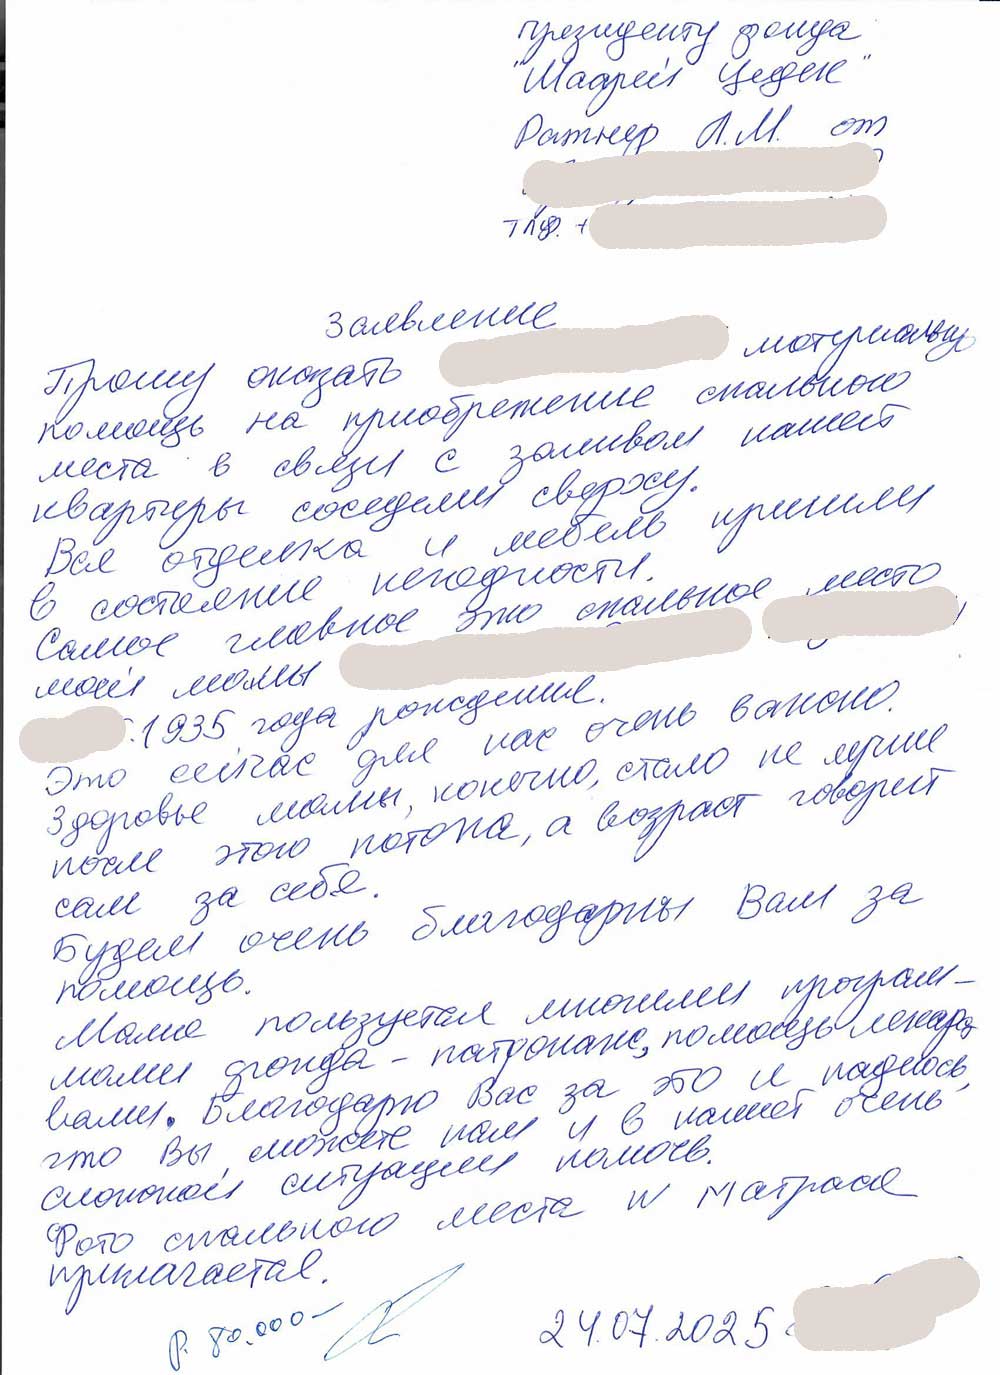 президенту фонда
"Шаарей Цедек"
Ратнер А.М. от
тлф. +
Заявление
Прошу оказать материальную
помощь на приобретение спального
места в связи с заливом нашей
квартиры соседями сверху.
Вся отделка и мебель пришли
в состояние негодности.
Самое главное это спальное место
моей мамы
1935 года рождения.
Это сейчас для нас очень важно.
Здоровье мамы, конечно, стало не лучше
после этого потопа, а возраст говорит
сам за себя.
Будем очень благодарны Вам за
помощь.
Мама пользуется многими програм-
мами фонда - патронаж, помощь лекарст
вами. Благодарю Вас за это и надеюсь,
что Вы можете нам и в нашей очень
сложной ситуации помочь.
Фото спального места и матраса
прилагается.
Р. 80.000-
24.07.2025